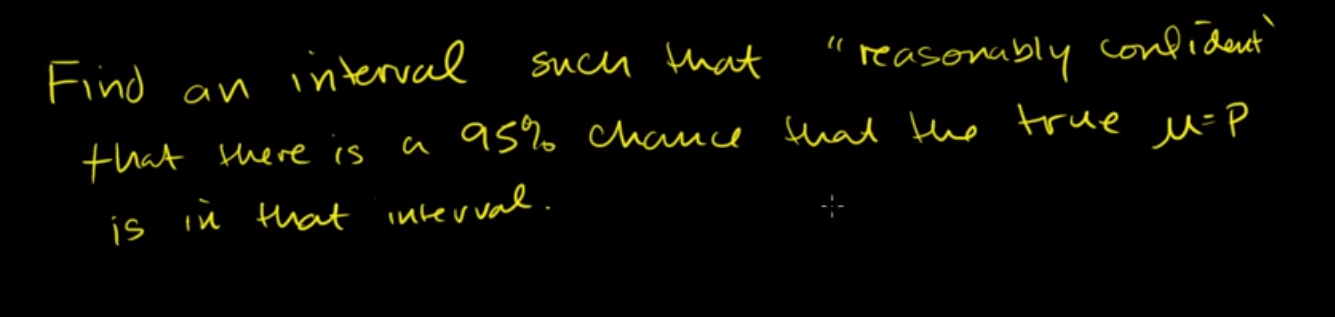 Find an interval such that "reasonably confident"
that there is a 95% chance that the true μ=P
is in that interval.